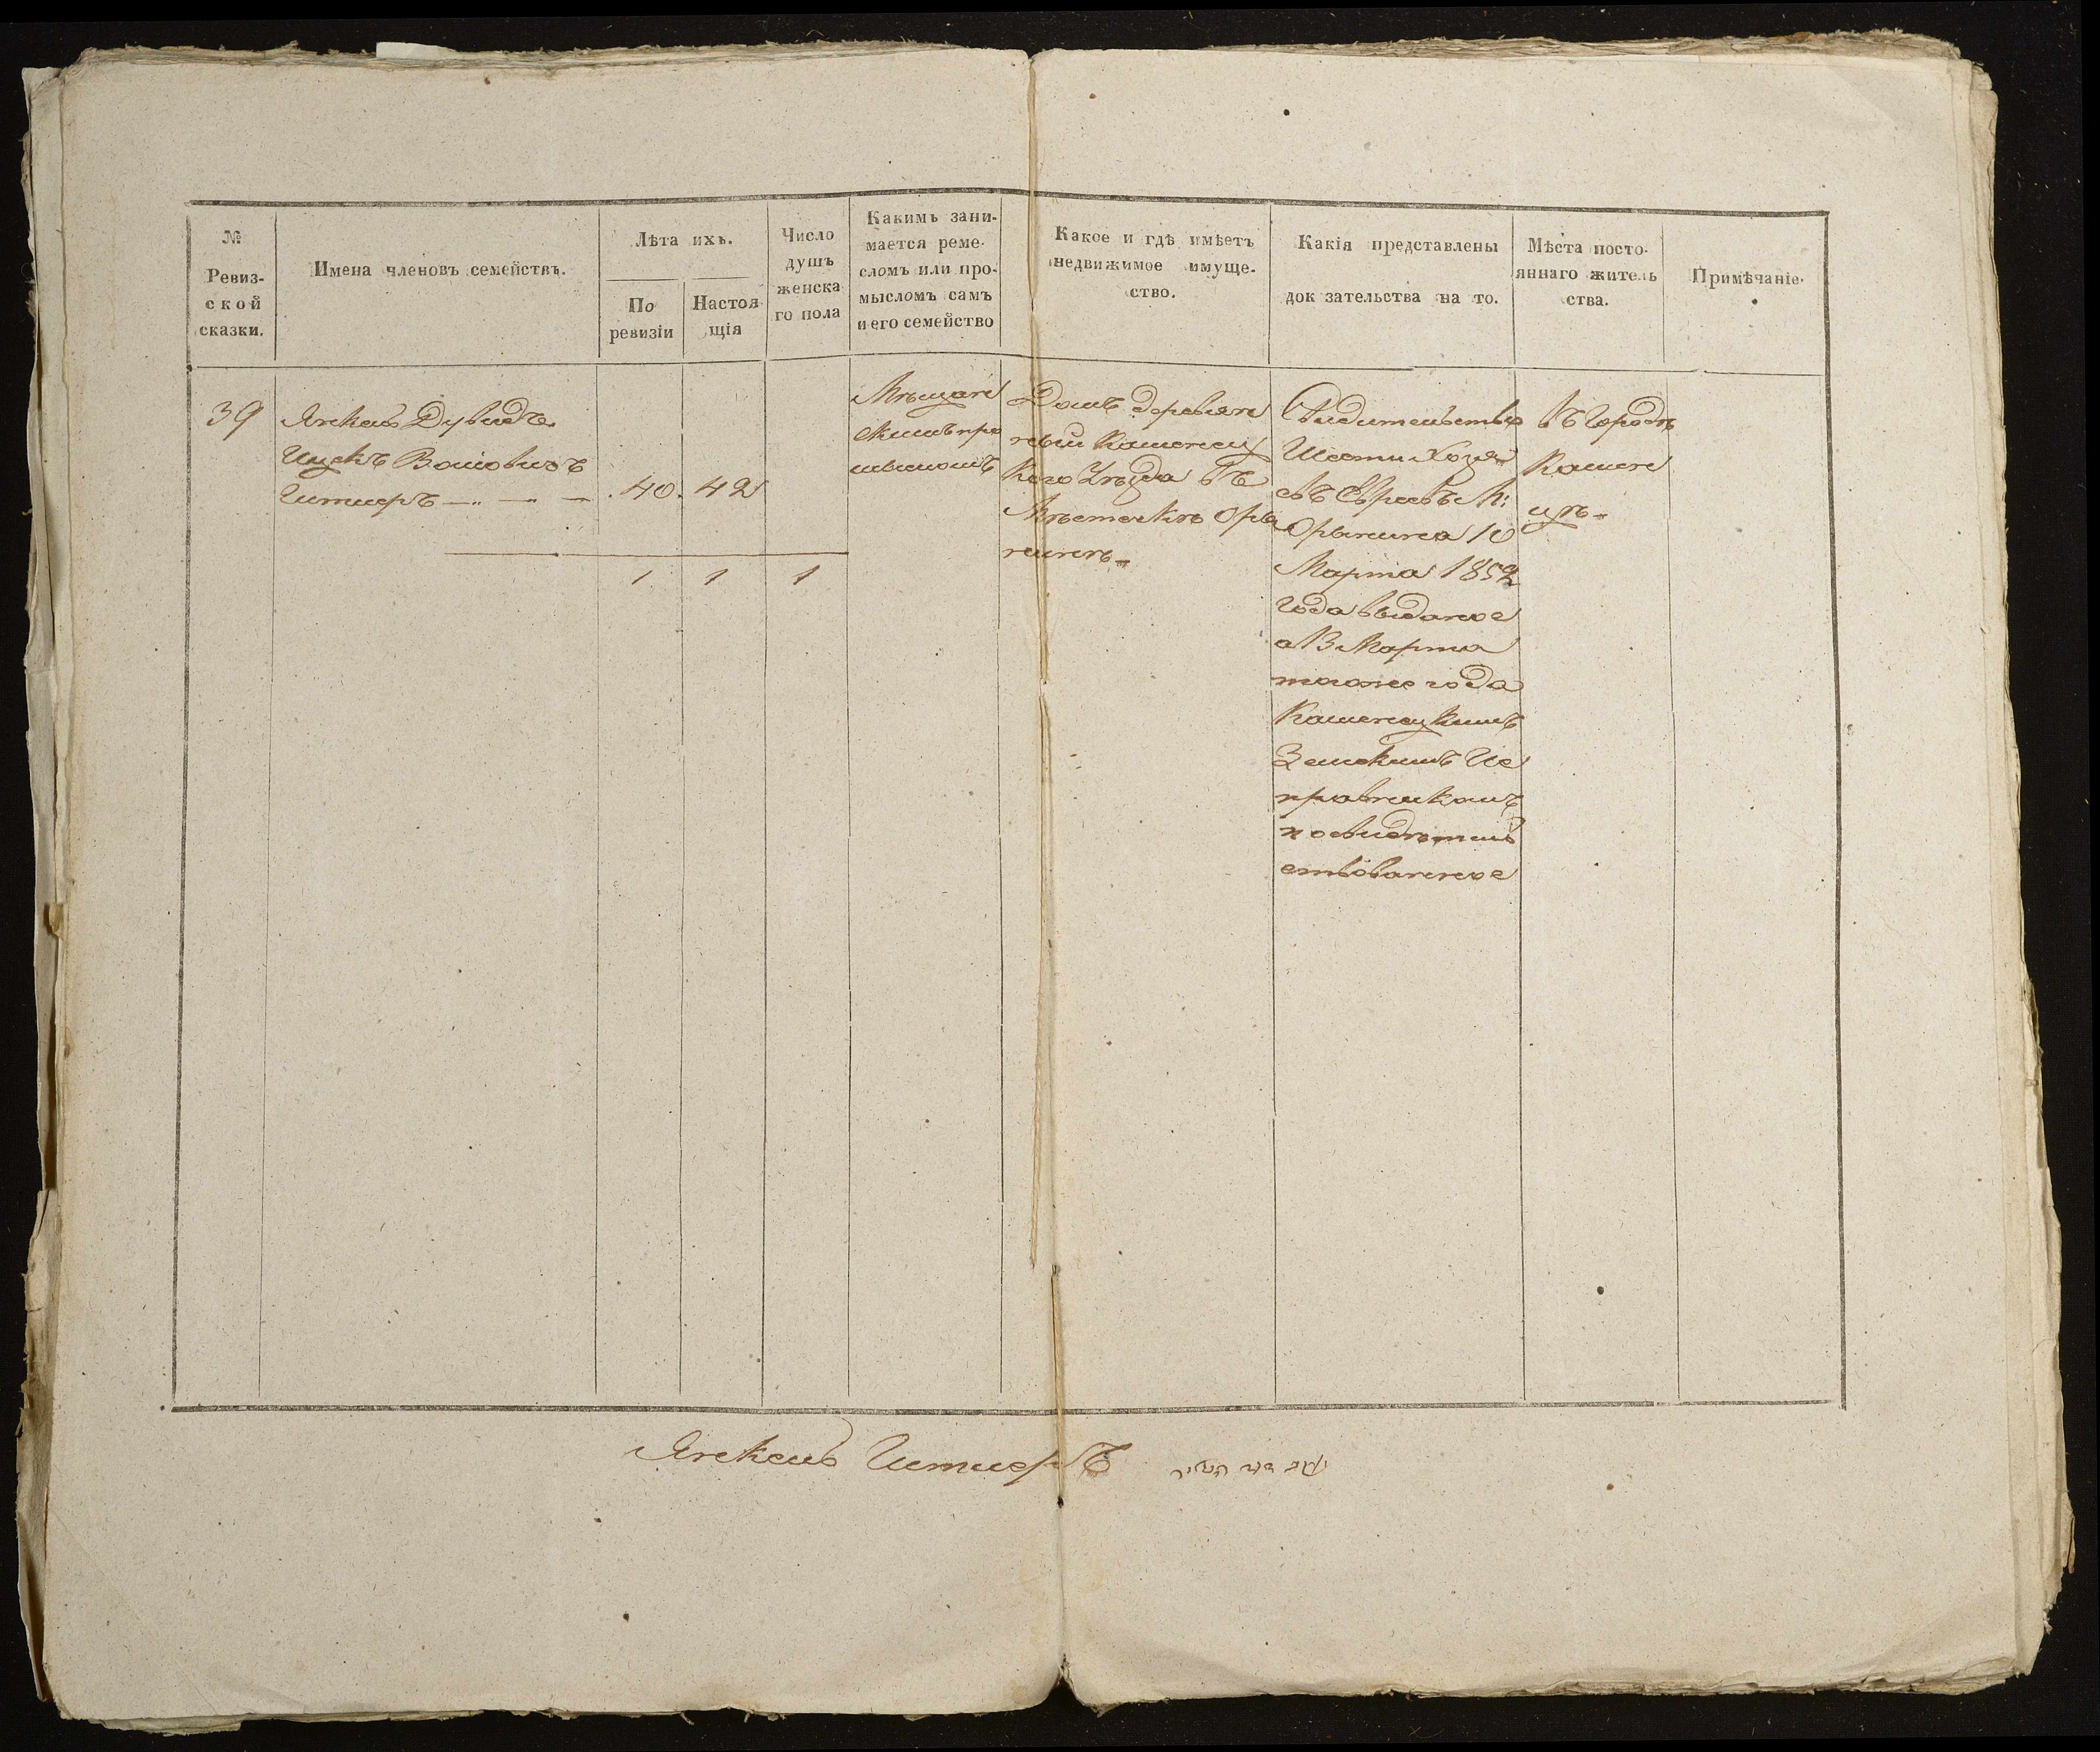 №
Ревиз-
ской
сказки.
Имена членовъ семействъ.
Лѣта ихъ.
По
ревизіи
Настоя
щія
Число
душъ
женска
го пола
Какимъ зани-
мается реме-
сломъ или про-
мысломъ самъ
и его семейство
Какое и гдѣ имѣетъ
недвижимое имуще-
ство.
Какія представлены
док зательства на то.
Мѣста посто-
яннаго житель
ства.
Примѣчаніе.
39
Янкель Дувидъ
Ицекъ
Штилеръ
40. 42
1 1 1
Мѣщанс
кимъ про
мысломъ
Домъ деревян
ный Каменец
кого Уѣзда въ
Мѣстечкѣ Оры
нинѣ
Свидетельство
Шести Хозя
евъ Евреевъ М:
Орынина 10
Марта 1852
года выданое
а 13 Марта
тогоже года
Каменецкимъ
Земскимъ Ис
правникомъ
посвидѣтель
ствованное
въ Городѣ
Камене
цѣ
Янкель